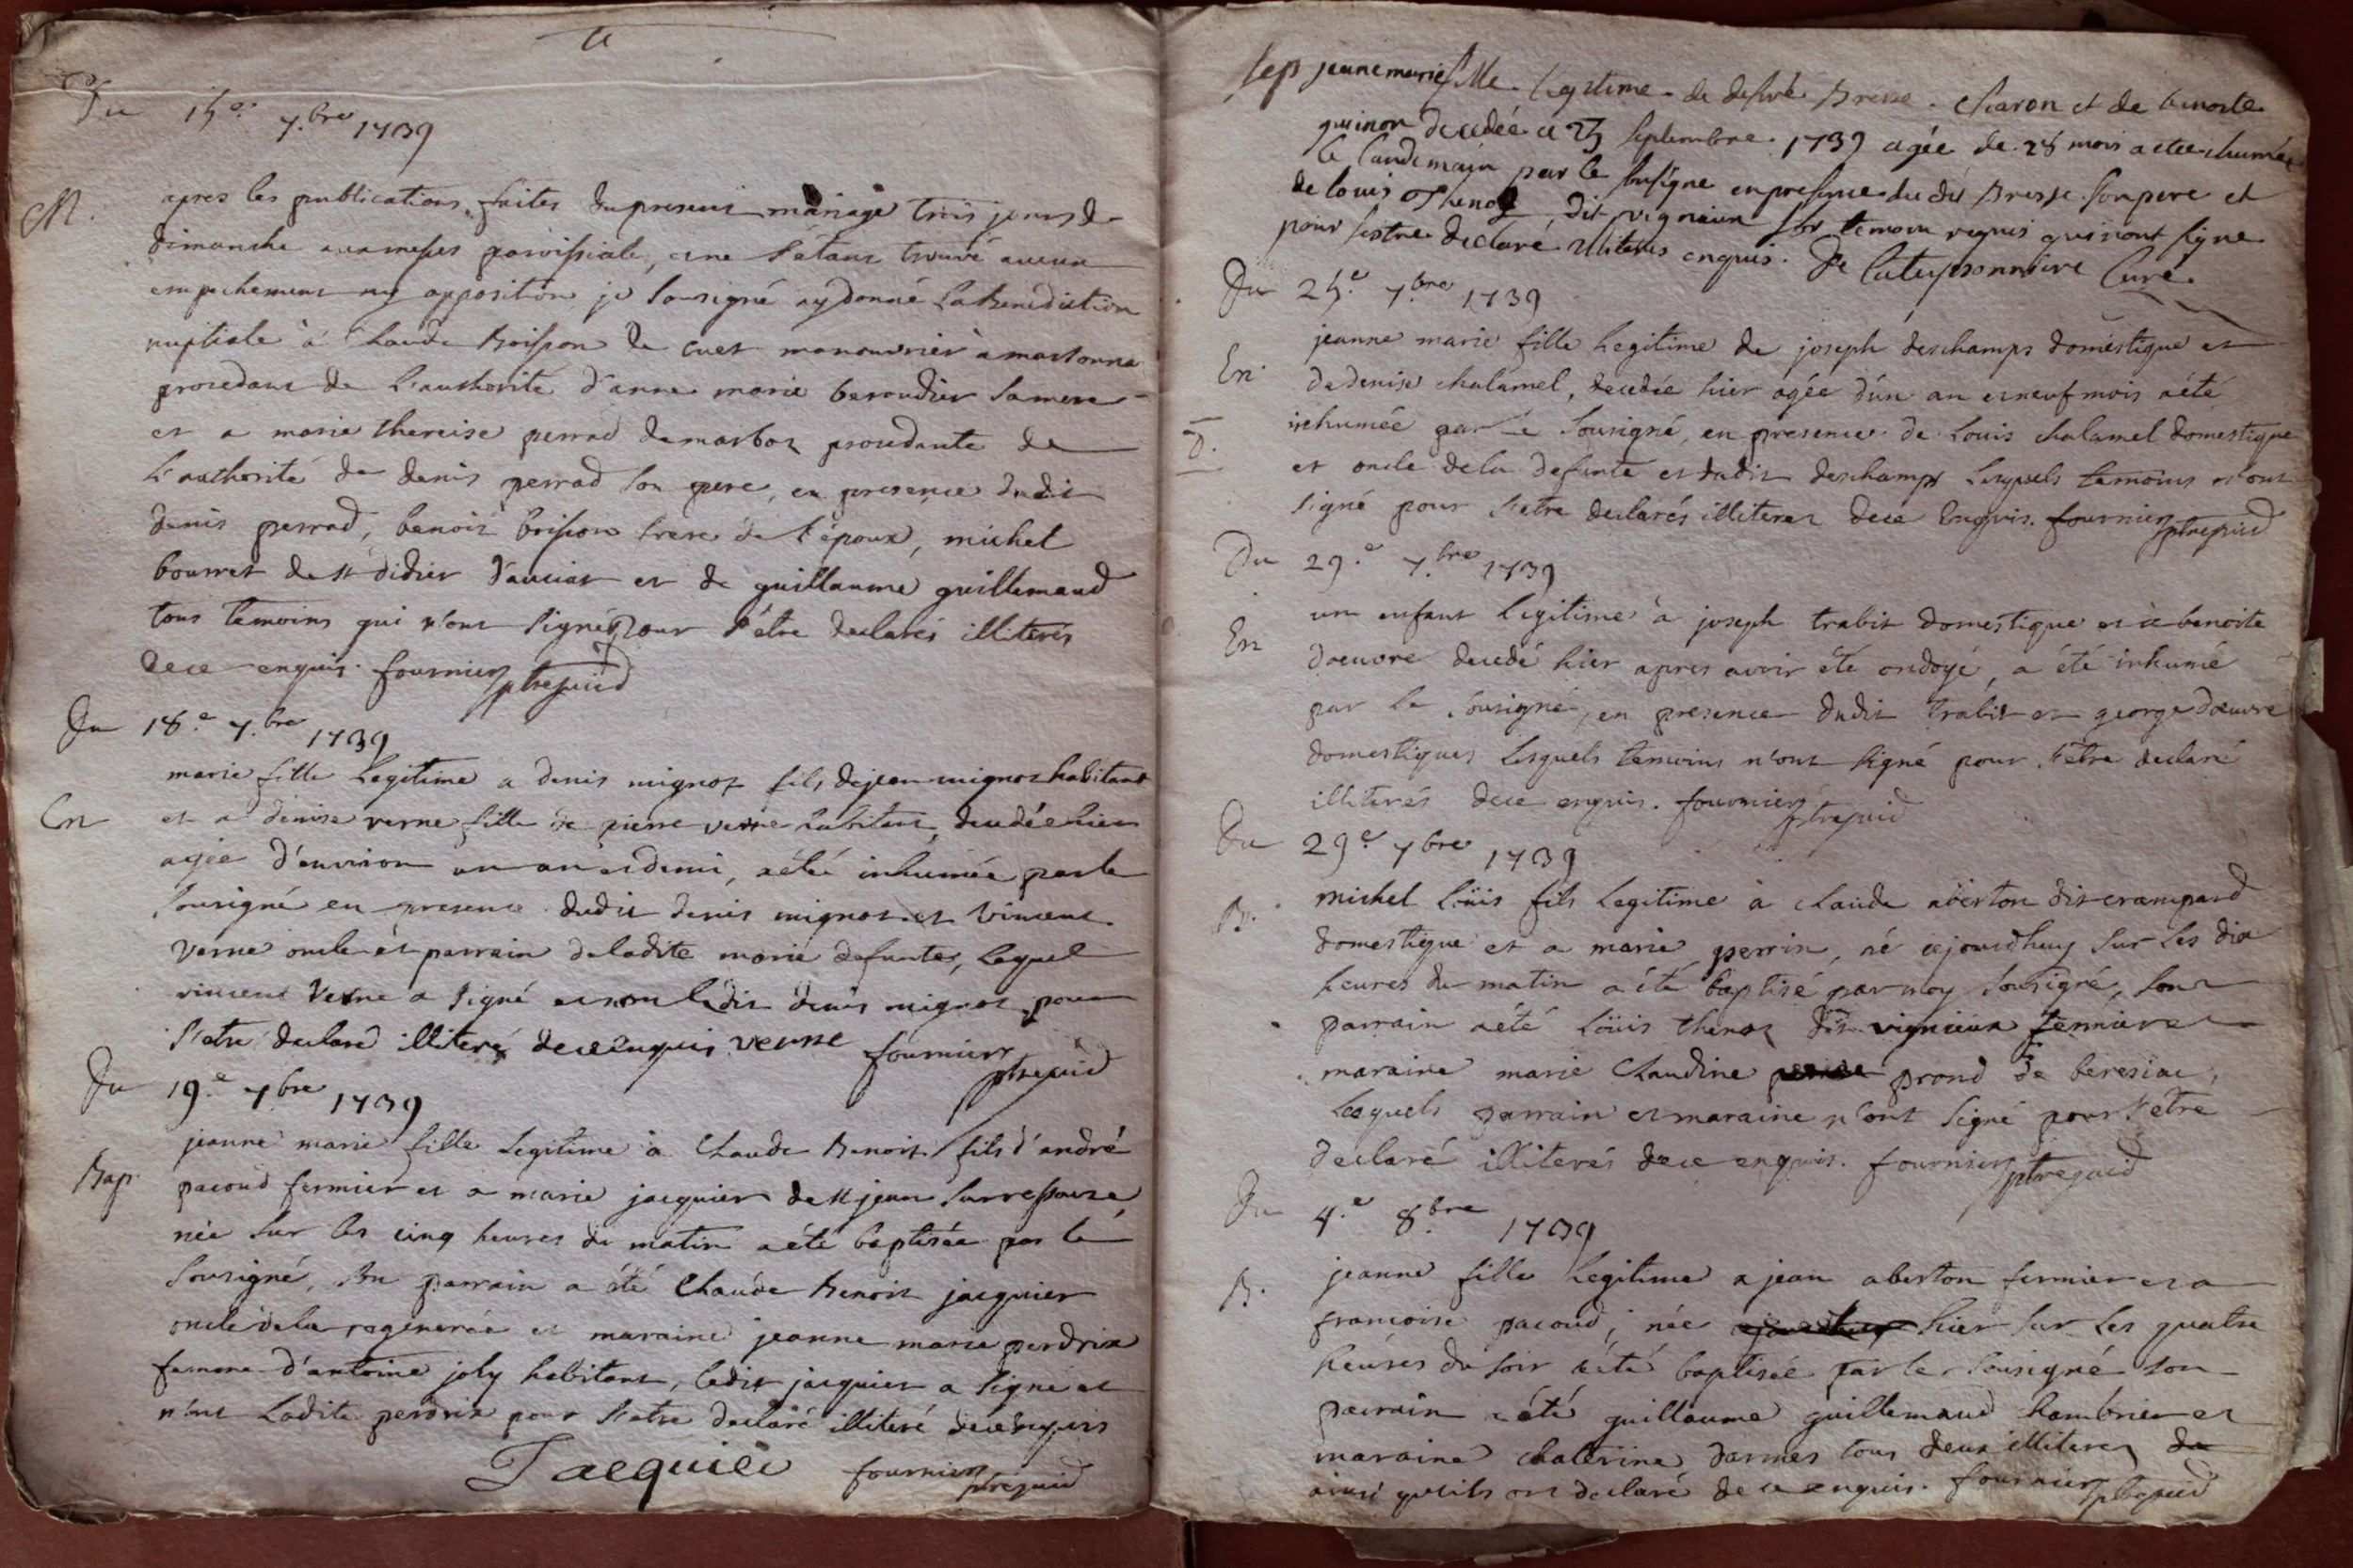 Du 15e 7.bre 1739
M. apres les publications faites du present mariage trois jours de
dimanche aux messes paroissiale, et ne s'étant trouvé aucun
empechement ny opposition je sousigné ay donné la benediction
nuptiale à Claude Boisson de cuet manouvrier à marsonna
procedant de l'authorité d'anne marie beraudier sa mere
et a marie thereise perrad de marboz procedante de
l'authorité de denis perrad son pere, en presence dudit
denis perrad, benoit boisson frere de l'époux, michel
bourret de st didier d'auciat et de guillaume guillemaud
tous temoins qui n'ont signés pour s'étre declarés illiterés
de ce enquis. fournier ptre
Du 18.e 7.bre 1739
En marie fille legitime a denis mignot fils de jean mignot habitant
et a denise verne fille de pierre verne habitant, decedée hier
agée d'environ un an et demi, a été inhumée par le
sousigné en presence dudit denis mignot et vincent
verne oncle et parrain de ladite marie defunte, lequel
vincent verne a signé et non ledit denis mignot pour
s'etre declaré illiteré de ce enquis verne fournier ptre
Du 19.e 7bre 1739
Bap. jeanne marie fille legitime à Claude Benoit fils d'andré
pacoud fermier et a marie jacquier de st jean sur ressouze,
née sur les cinq heures du matin a été baptisée par le
sousigné, son parrain a été Claude Benoit jacquier
oncle de la regenerée et maraine jeanne marie perdrix
femme d'antoine joly habitant, ledit jacquier a signé et
non ladite perdrix pour s'etre declaré illiteré de ce enquis
Jacquier fournier ptre
jeanne marie fille legitime de Bresse Charon et de benoite
guinon decedée le 23 septembre 1739 agée de 28 mois a etee inhumée
le landemain par le susigne en presence du dit Bresse son pere et
de louis Thenoz dit vignieux temoin requis qui n'ont signe
pour s'estre declaré illiterés enquis. De Curé
Du 25.e 7.bre 1739
En. jeanne marie fille legitime de joseph deschamps domestique et
de denise chalamel, decedée hier agée d'un an et neuf mois a été
D. inhumée par le sousigné, en presence de Louis chalamel domestique
et oncle de la defunte et dudit deschamps lesquels temoins n'ont
signé pour s'etre declarés illiterez de ce enquis. fournier ptre
Du 29.e 7.bre 1739
En un enfant legitime à joseph trabit domestique et à benoite
doeuvre decedé hier apres avoir été ondoyé, a été inhumé
par le sousigné, en presence dudit trabit et george doeuvre
domestiques lesquels temoins n'ont signé pour s'etre declaré
illiterés de ce enquis. fournier ptre
Du 29.e 7bre 1739
B. michel loüis fils legitime à claude aberton dit crampard
domestique et a marie perrin, né cejourd'huy sur les dix
heures du matin a été baptisé par moy sousigné, son
parrain a été loüis thenoz dit vignieux fermier et
maraine marie Claudine prond de beresiac,
lesquels parrain et maraine n'ont signé pour s'etre
declaré illiterés de ce enquis. fournier ptre
Du 4.e 8.bre 1739
B. jeanne fille legitime a jean aberton fermier et a
francoise pacoud, née hier sur les quatre
heures du soir a été baptisée par le sousigné son
parrain a été guillaume guillemaud et
maraine chaterine darmes tous deux illiterez
ainsi qu'ils ont declaré de ce enquis. fournier ptre